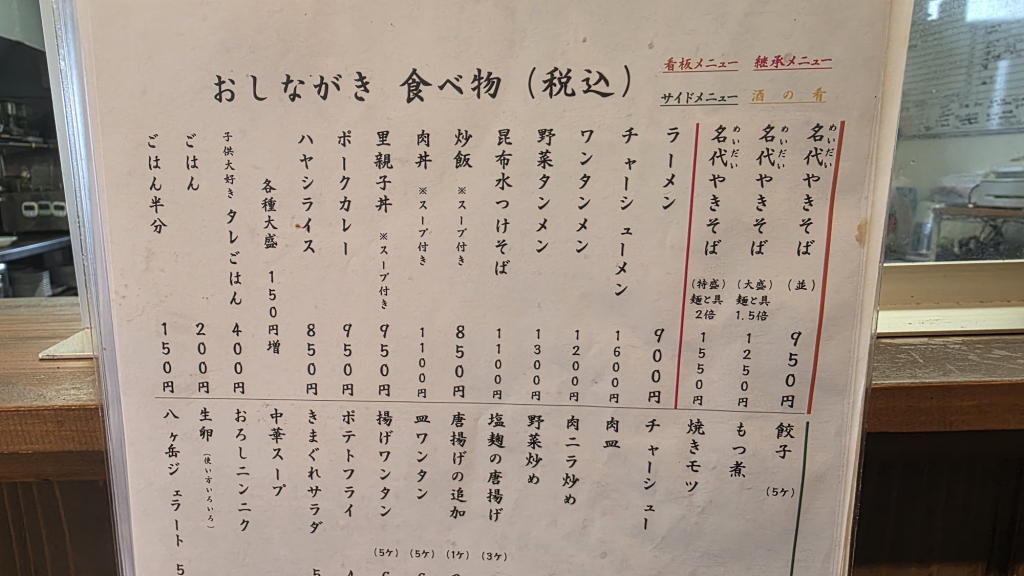 おしながき 食べ物 (税込)
看板メニュー 継承メニュー
サイドメニュー 酒の肴
名代やきそば (並) 950円
めいだい
名代やきそば (大盛) 麺と具 1.5倍 1250円
めいだい
名代やきそば (特盛) 麺と具 2倍 1550円
めいだい
ラーメン 900円
チャーシューメン 1600円
ワンタンメン 1200円
野菜タンメン 1300円
昆布水つけそば 1100円
炒飯 ※スープ付き 850円
肉丼 ※スープ付き 1100円
里親子丼 ※スープ付き 950円
ポークカレー 950円
ハヤシライス 850円
各種大盛 150円増
子供大好き タレごはん 400円
ごはん 200円
ごはん半分 150円
餃子 (5ケ)
もつ煮
焼きモツ
チャーシュー
肉皿
肉ニラ炒め
野菜炒め
塩麹の唐揚げ (3ケ)
唐揚げの追加 (1ケ)
皿ワンタン (5ケ)
揚げワンタン (5ケ)
ポテトフライ
きまぐれサラダ 5
中華スープ
おろしニンニク
生卵 (使い方いろいろ)
八ヶ岳ジェラート 5